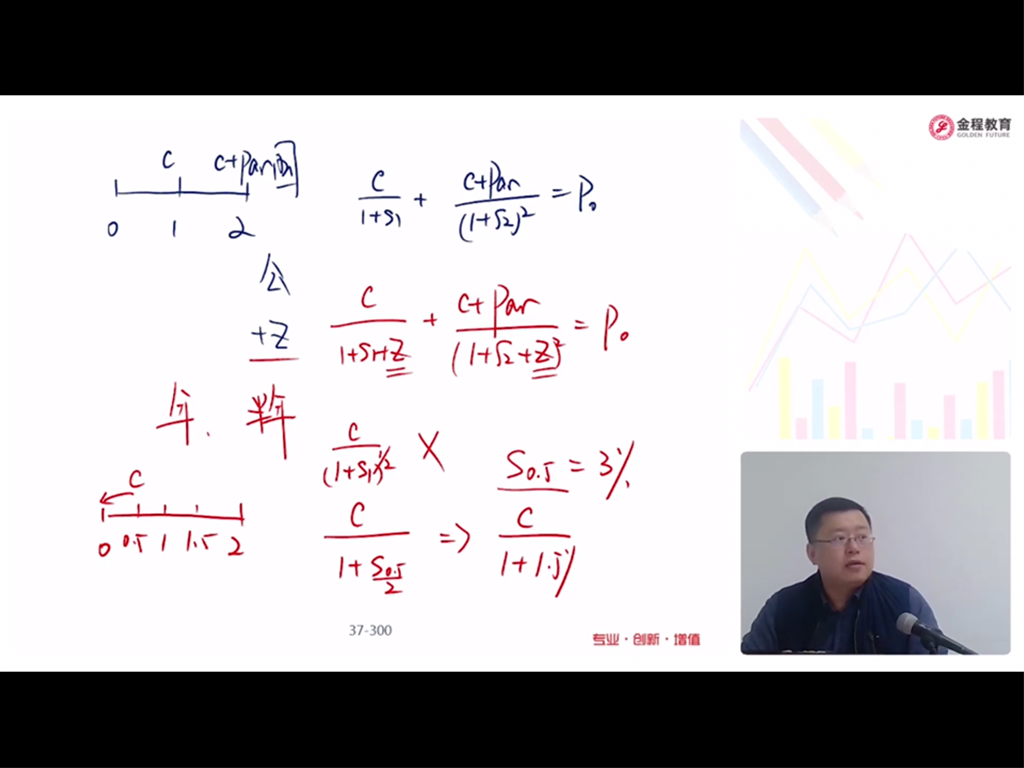 金程教育
GOLDEN FUTURE
C C+Par
0 1 2
C/(1+S₁) + (C+Par)/(1+S₂)² = P₀
公
+Z
C/(1+S₁+Z) + (C+Par)/(1+S₂+Z)² = P₀
年. 半年
C/(1+S₁)^½ X
S₀.₅ = 3%
C
0 0.5 1 1.5 2
C/(1+S₀.₅/2) => C/(1+1.5%)
37-300
专业·创新·增值